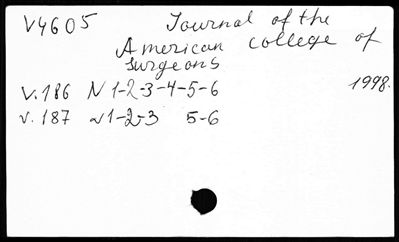 V4605 Journal of the
American college of
surgeons
V.186 N 1-2-3-4-5-6 1998.
v.187 N1-2-3 5-6